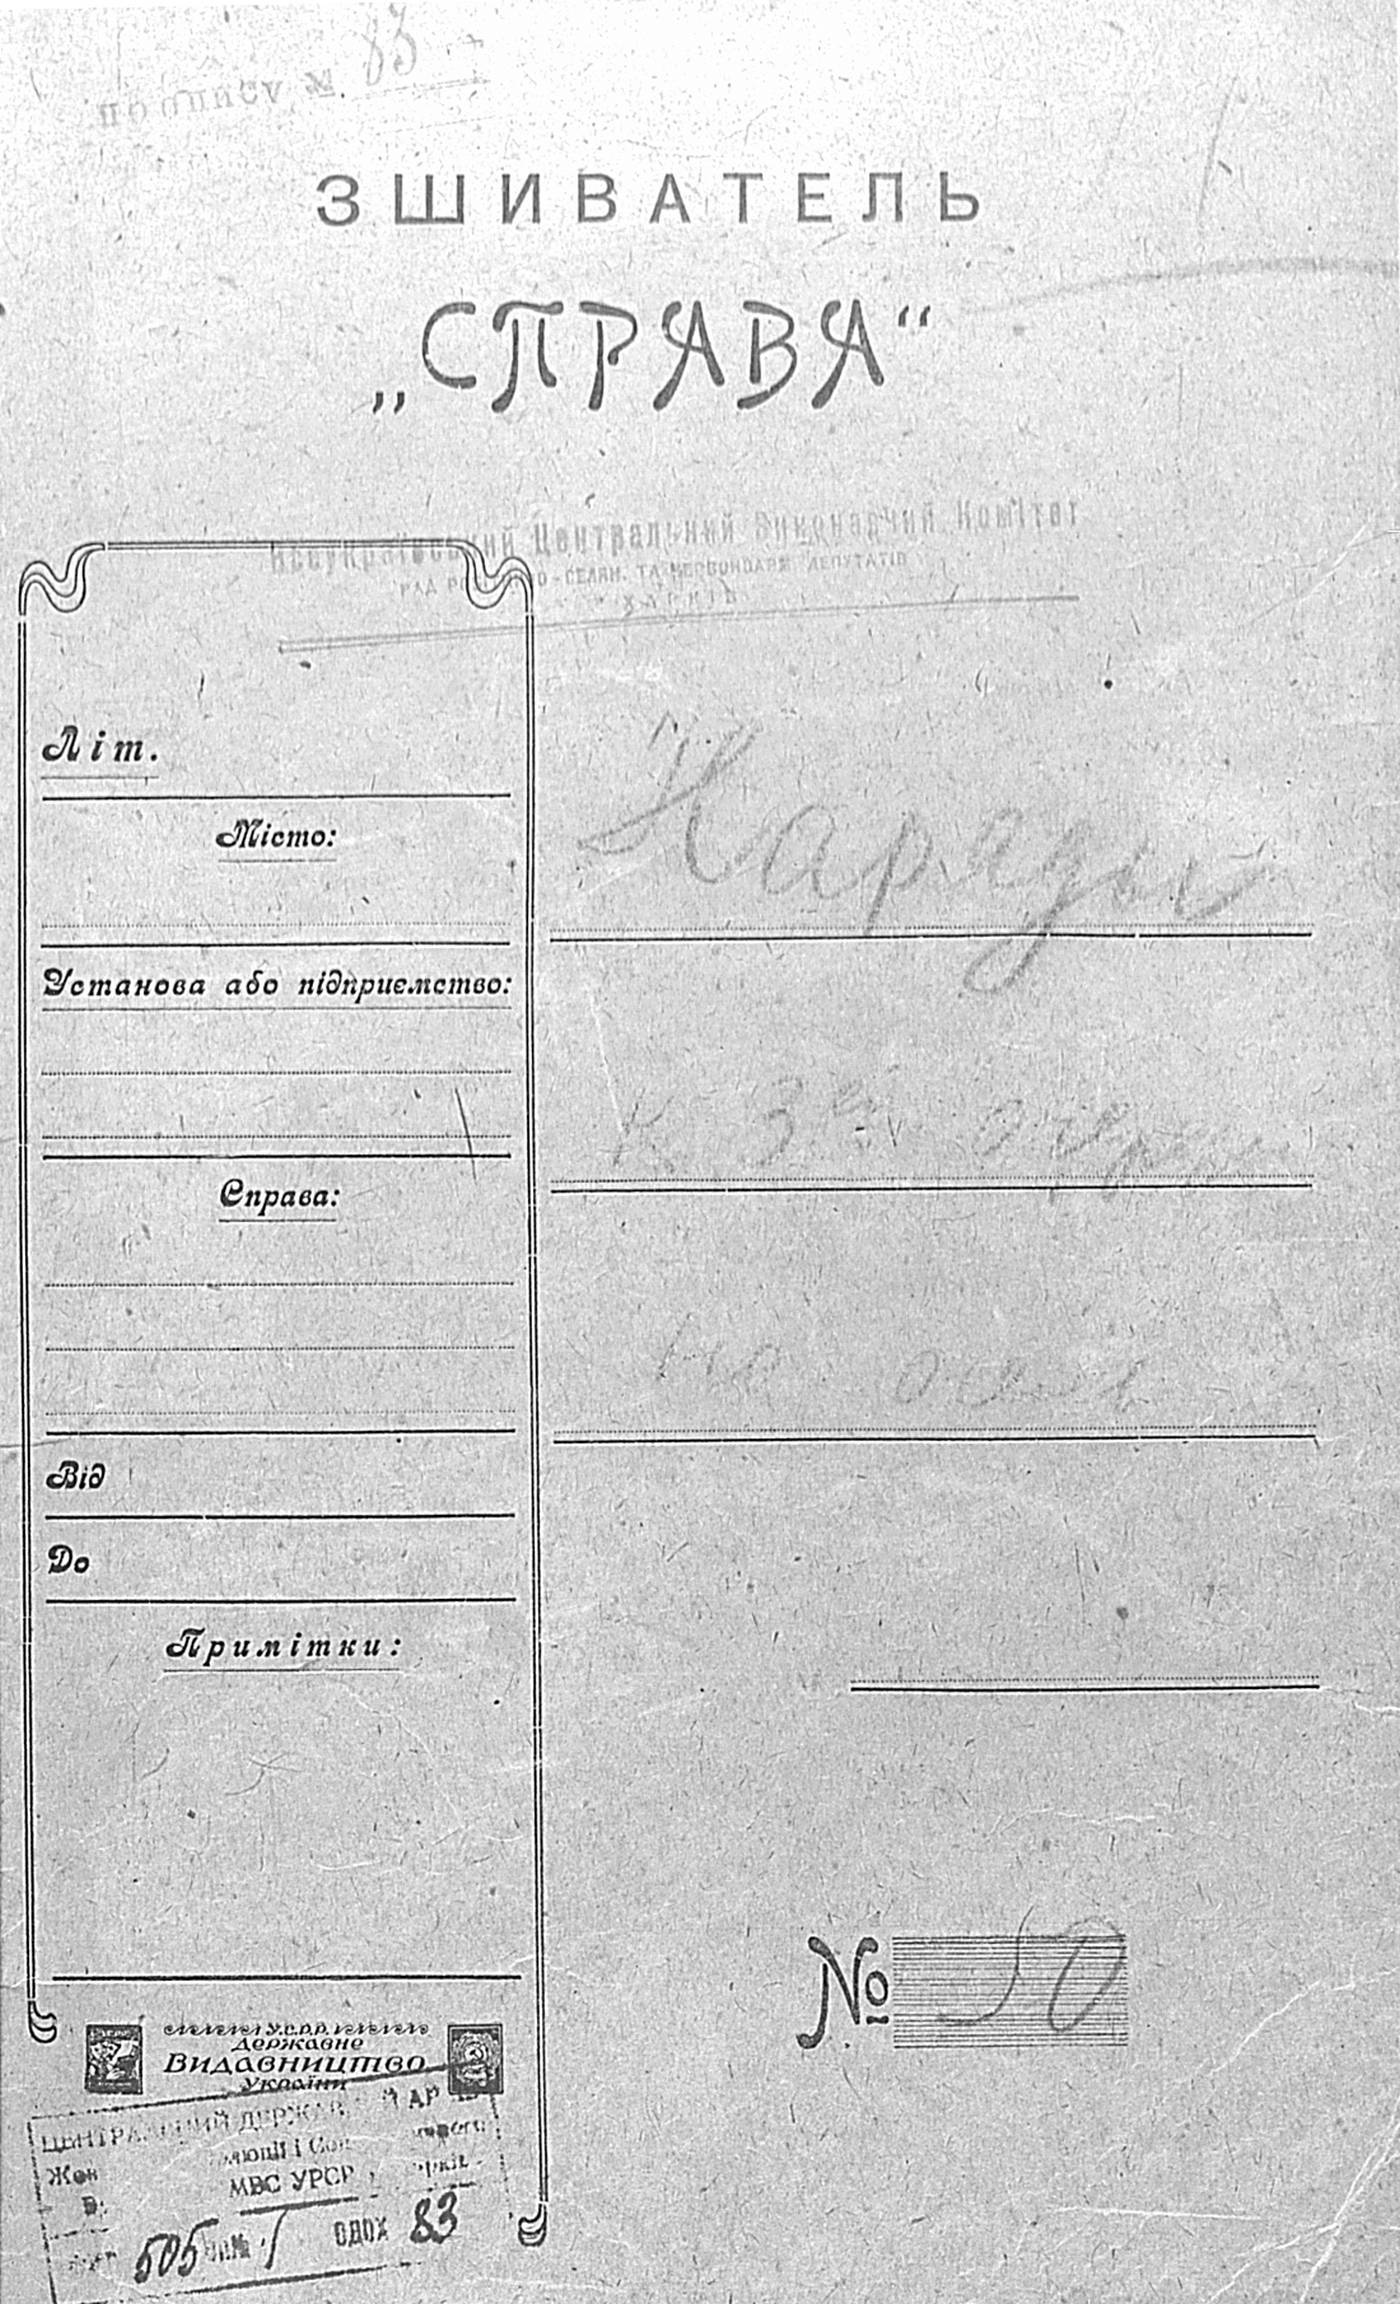 по опису № 83
ЗШИВАТЕЛЬ
„СПРАВА“
Всеукраїнський Центральний Виконавчий Комітет
РАД СЕЛЯН. ТА ЧЕРВОНОАРМ. ДЕПУТАТІВ
ХАРКІВ
Літ.
Місто:
Наряды
Установа або підприємство:
к 3
Справа:
Від
До
Примітки:
№ 50
У.С.Р.Р.
Державне
Видавництво
України
ЦЕНТРАЛЬНИЙ ДЕРЖАВНИЙ АРХІВ
Жов
МВС УРСР
505 оп.№ 1 ОДОХ 83